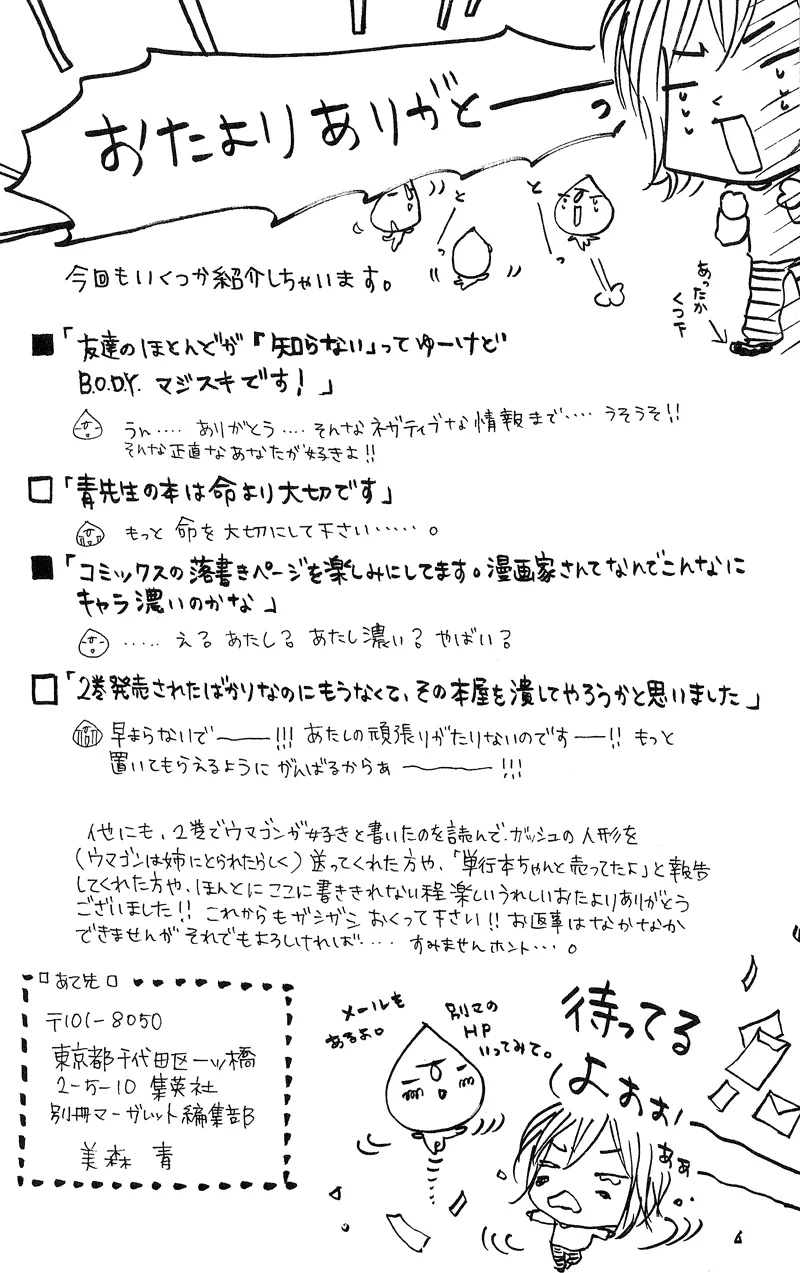 おたよりありがとーーっ
とーっ
とーっ
あったか
くつ下
今回もいくつか紹介しちゃいます。
■「友達のほとんどが『知らない」ってゆーけど
B.O.D.Y. マジスキです!」
うん‥‥ ありがとう‥‥そんなネガティブな情報まで‥‥ うそうそ!!
そんな正直なあなたが好きよ!!
□「青先生の本は命より大切です」
もっと 命を大切にして下さい‥‥‥。
■「コミックスの落書きページを楽しみにしてます。漫画家さんてなんでこんなに
キャラ濃いのかな」
‥‥‥ え? あたし? あたし濃い? やばい?
□「2巻発売されたばかりなのにもうなくて、その本屋を潰してやろうかと思いました」
早まらないで――!!! あたしの頑張りがたりないのです―!! もっと
置いてもらえるように がんばるからぁ ――!!!
他にも、2巻でウマゴンが好きと書いたのを読んで、ガッシュの人形を
(ウマゴンは姉にとられたらしく)送ってくれた方や、「単行本ちゃんと売ってたよ」と報告
してくれた方や、ほんとにここに書ききれない程楽しいうれしいおたよりありがとう
ございました!! これからもガシガシおくって下さい!! お返事はなかなか
できませんが それでもよろしければ‥‥ すみませんホント‥‥。
□あて先□
〒101-8050
東京都千代田区一ッ橋
2-5-10 集英社
別冊マーガレット編集部
美森 青
メールも
あるよ。
別マの
HP
いってみて。
待ってる
よぉぉ
ぁぁ